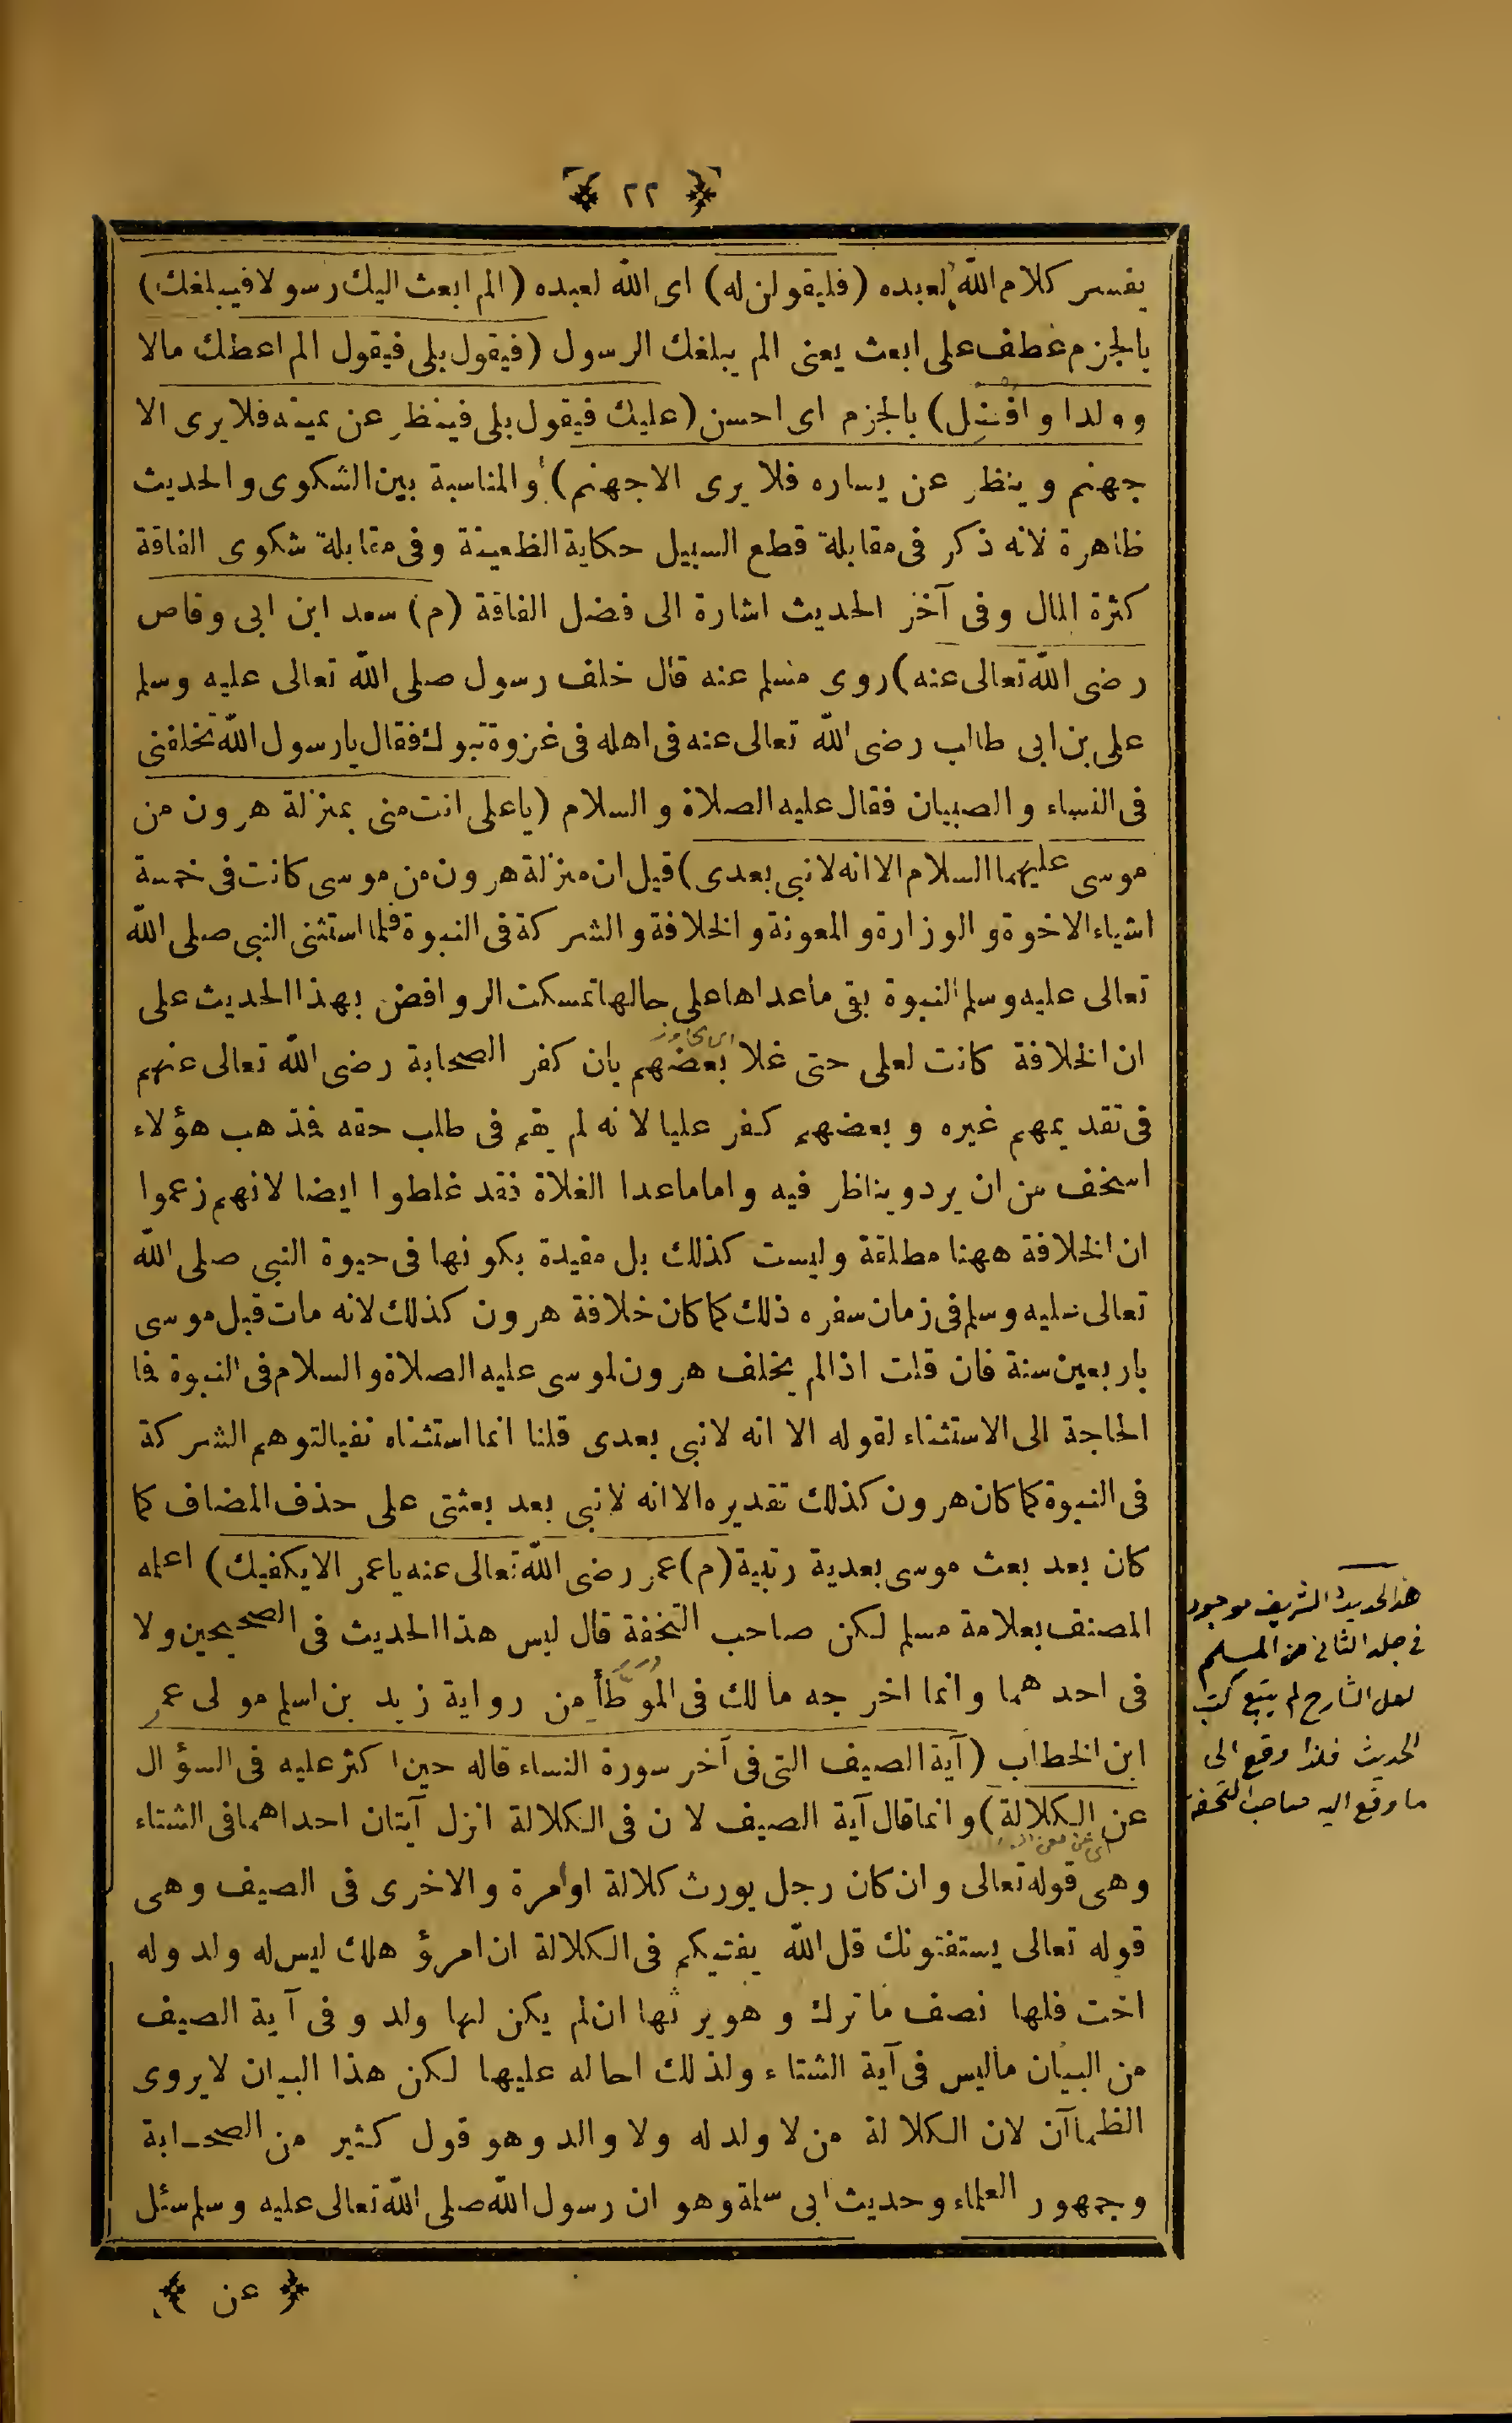 ﴿ ٢٢ ﴾
يفسر كلام الله لعبده (فليقولن له) اى الله لعبده (الم ابعث اليك رسولا فيبلغك)
بالجزم عطف على ابعث يعنى الم يبلغك الرسول (فيقول بلى فيقول الم اعطك مالا
وولدا وافضل) بالجزم اى احسن (عليك فيقول بلى فينظر عن يمينه فلا يرى الا
جهنم وينظر عن يساره فلا يرى الا جهنم) والمناسبة بين الشكوى والحديث
ظاهرة لانه ذكر فى مقابلة قطع السبيل حكاية الظعينة وفى مقابلة شكوى الفاقة
كثرة المال وفى آخر الحديث اشارة الى فضل الفاقة (م) سعد ابن ابى وقاص
رضى الله تعالى عنه) روى مسلم عنه قال خلف رسول صلى الله تعالى عليه وسلم
على بن ابى طالب رضى الله تعالى عنه فى اهله فى غزوة تبوك فقال يارسول الله تخلفنى
فى النساء والصبيان فقال عليه الصلاة والسلام (ياعلى انت منى بمنزلة هرون من
موسى عليهما السلام الا انه لا نبى بعدى) قيل ان منزلة هرون من موسى كانت فى خمسة
اشياء الاخوة والوزارة والمعونة والخلافة والشركة فى النبوة فلما استثنى النبى صلى الله
تعالى عليه وسلم النبوة بقى ماعداها على حالها تمسكت الروافض بهذا الحديث على
ان الخلافة كانت لعلى حتى غلا بعضهم بان كفر الصحابة رضى الله تعالى عنهم
اى تجاوز
فى تقديمهم غيره وبعضهم كفر عليا لانه لم يقم فى طلب حقه فذهب هؤلاء
اسخف من ان يرد ويناظر فيه واما ماعدا الغلاة فقد غلطوا ايضا لانهم زعموا
ان الخلافة ههنا مطلقة وليست كذلك بل مقيدة بكونها فى حيوة النبى صلى الله
تعالى عليه وسلم فى زمان سفره ذلك كما كان خلافة هرون كذلك لانه مات قبل موسى
باربعين سنة فان قلت اذا لم يخلف هرون لموسى عليه الصلاة والسلام فى النبوة فما
الحاجة الى الاستثناء لقوله الا انه لا نبى بعدى قلنا انما استثناه نفيا لتوهم الشركة
فى النبوة كما كان هرون كذلك تقديره الا انه لا نبى بعد بعثتى على حذف المضاف كما
كان بعد بعث موسى بعدية رتبية (م) عمر رضى الله تعالى عنه ياعمر الا يكفيك) اعلمه
المصنف بعلامة مسلم لكن صاحب التحفة قال ليس هذا الحديث فى الصحيحين ولا
فى احدهما وانما اخرجه مالك فى الموطأ من رواية زيد بن اسلم مولى عمر
ابن الخطاب (آية الصيف التى فى آخر سورة النساء قاله حين اكثر عليه فى السؤال
عن الكلالة) وانما قال آية الصيف لان فى الكلالة انزل آيتان احداهما فى الشتاء
وهى قوله تعالى وان كان رجل يورث كلالة او امرة والاخرى فى الصيف وهى
قوله تعالى يستفتونك قل الله يفتيكم فى الكلالة ان امرؤ هلك ليس له ولد وله
اخت فلها نصف ماترك وهو يرثها ان لم يكن لها ولد وفى آية الصيف
من البيان ماليس فى آية الشتاء ولذلك احاله عليها لكن هذا البيان لا يروى
الظمآن لان الكلالة من لا ولد له ولا والد وهو قول كثير من الصحابة
وجمهور العلماء وحديث ابى سلمة وهو ان رسول الله صلى الله تعالى عليه وسلم سئل
﴿ عن ﴾
هذا الحديث الشريف موجود
فى جلد الثانى من المسلم
لعل الشارح لم يتبع كتب
الحديث فلذا وقع الى
ما وقع اليه صاحب التحفة